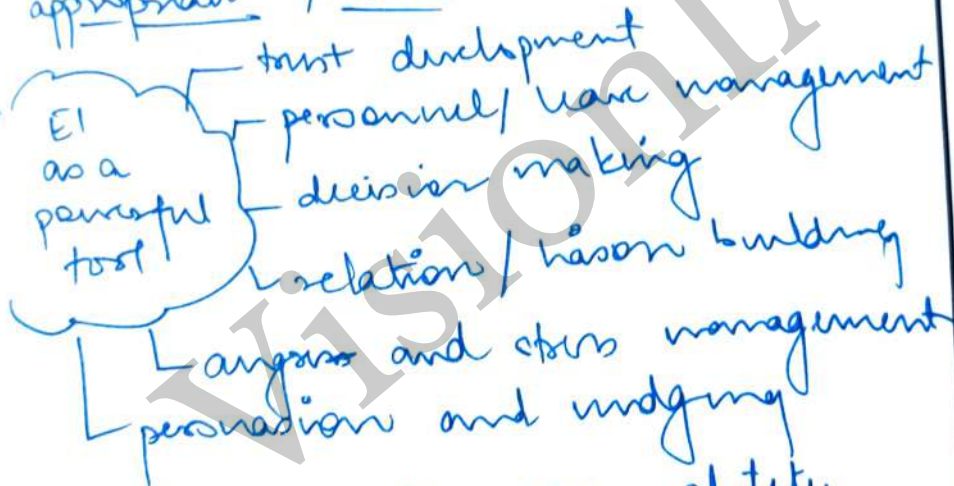 EI
as a
powerful
tool
trust development
personnel/ management
decision making
relation/ liason building
and stress management
persuasion and nudging
VisionI